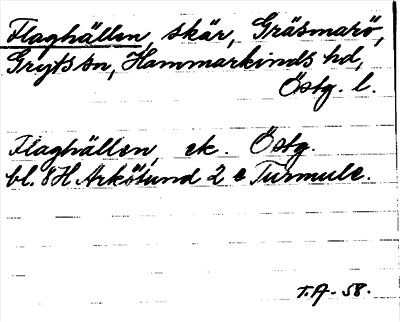 Flaghällen, skär, Gräsmarö,
Gryts sn, Hammarkinds hd,
Östg. l.
Flaghällen, ek. Östg.
bl. 8H Arkösund 2 e Turmule.
T.A. 58.